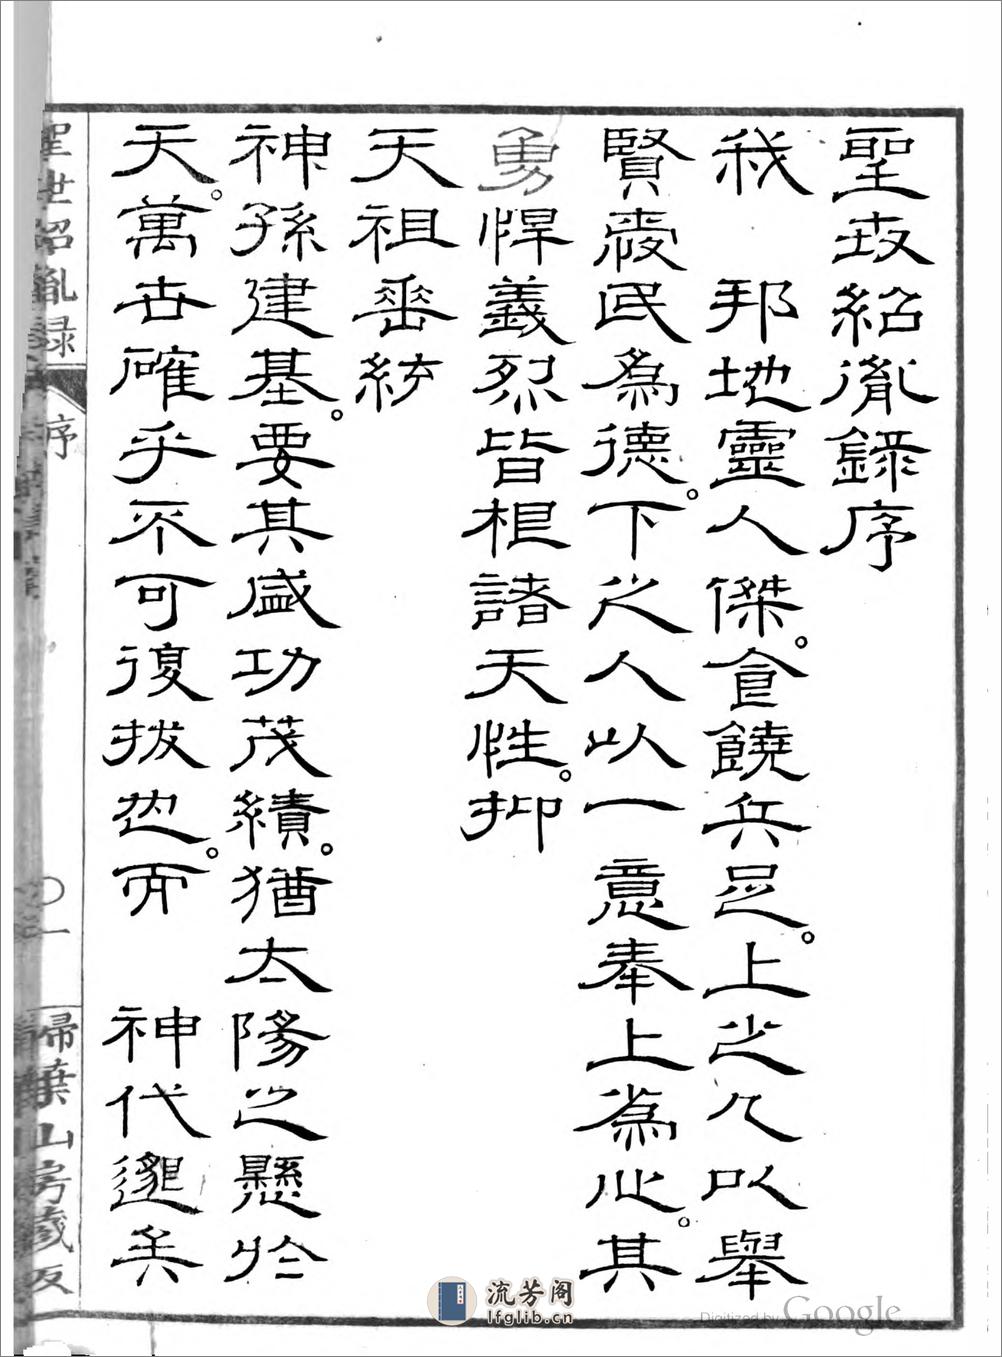 聖世紹胤錄序
我　邦地靈人傑。食饒兵足。上之人以舉
賢愛民為德。下之人以一意奉上為心。其
勇悍義烈皆根諸天性。抑
天祖垂統
神孫建基。要其盛功茂績。猶太陽之懸於
天。萬世確乎不可復拔也。而　神代邈矣
聖世紹胤録
序
〇一
掃葉山房藏
流芳阁
lfglib.cn
Digitized by Google